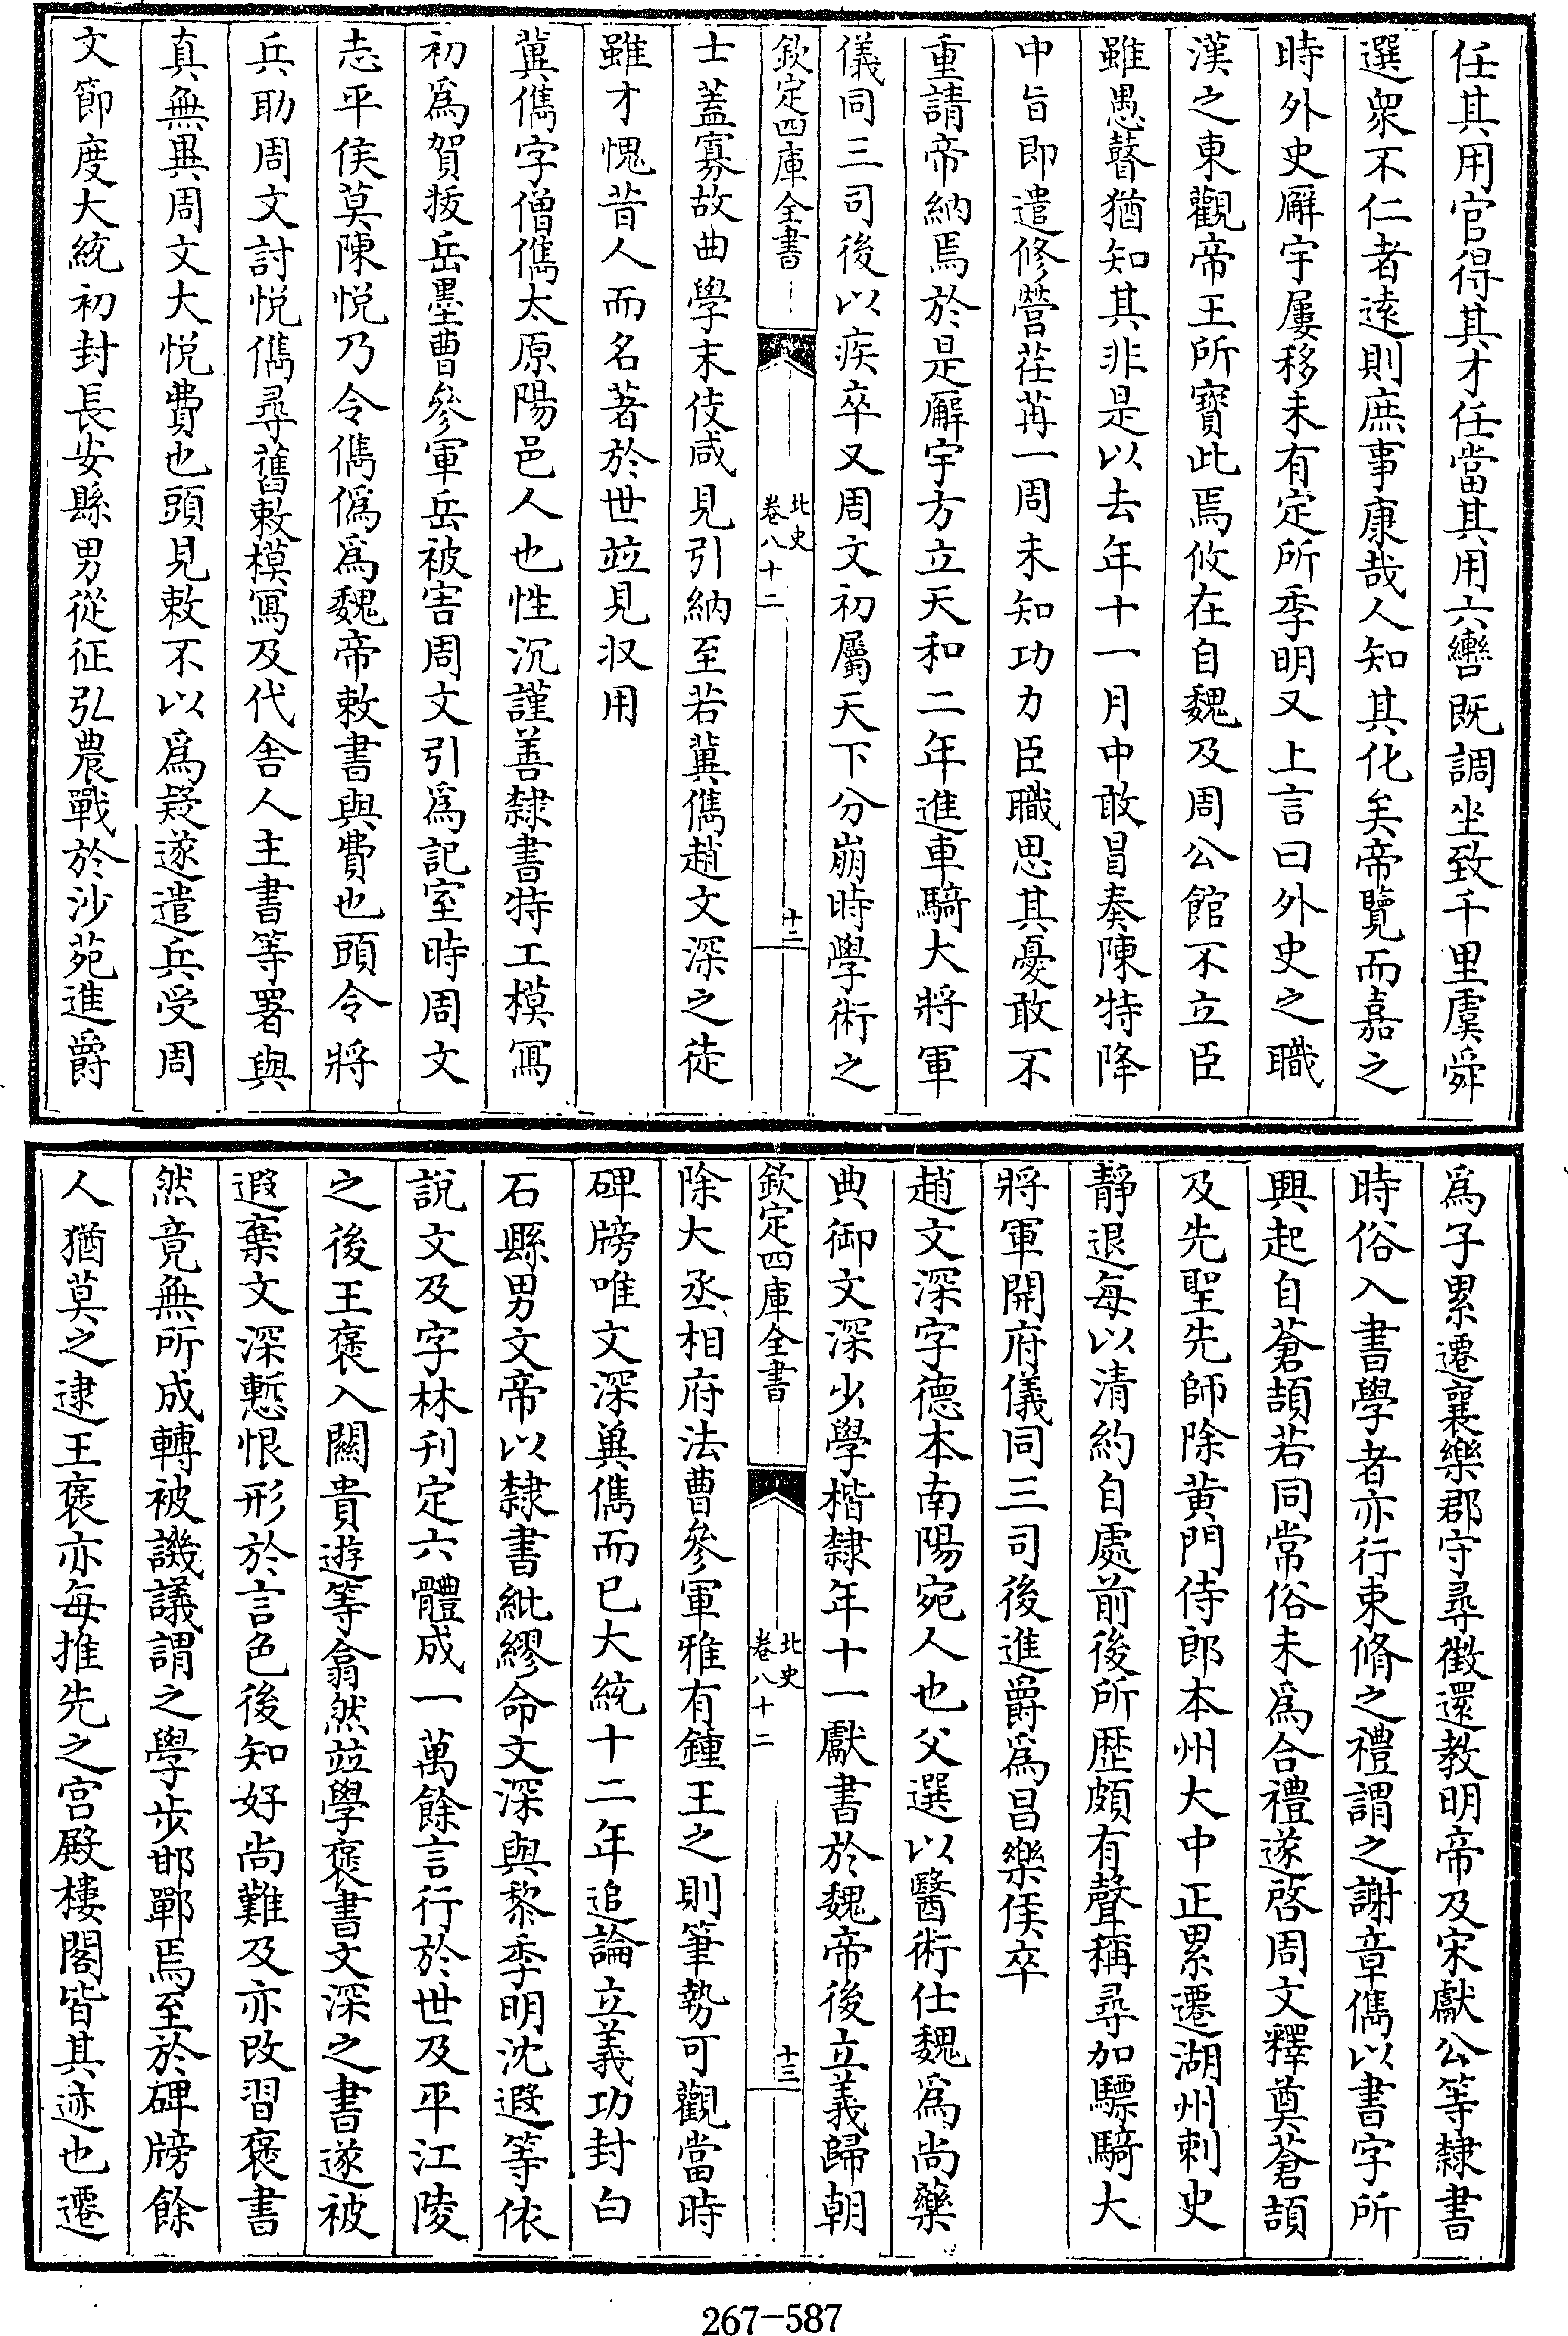 任其用官得其才任當其用六轡既調坐致千里虞舜
選衆不仁者逺則庶事康哉人知其化矣帝覽而嘉之
時外史廨宇屢移未有定所季明又上言曰外史之職
漢之東觀帝王所寶此焉攸在自魏及周公館不立臣
雖愚瞽猶知其非是以去年十一月中敢冒奏陳特降
中旨即遣修營荏苒一周未知功力臣職思其憂敢不
重請帝納焉於是廨宇方立天和二年進車騎大將軍
儀同三司後以疾卒又周文初屬天下分崩時學術之
欽定四庫全書
北史
卷八十二
十二
士蓋寡故曲學末伎咸見引納至若冀儁趙文深之徒
雖才愧昔人而名著於世竝見収用
冀儁字僧儁太原陽邑人也性沉謹善隸書特工模冩
初爲賀拔岳墨曹參軍岳被害周文引爲記室時周文
志平侯莫陳悦乃令儁僞爲魏帝敕書與費也頭令將
兵助周文討悦儁尋舊敕模冩及代舍人主書等署與
真無異周文大悦費也頭見敕不以爲疑遂遣兵受周
文節度大統初封長安縣男從征弘農戰於沙苑進爵
爲子累遷襄樂郡守尋徵還教明帝及宋獻公等隸書
時俗入書學者亦行束脩之禮謂之謝章儁以書字所
興起自蒼頡若同常俗未爲合禮遂啓周文釋奠蒼頡
及先聖先師除黄門侍郎本州大中正累遷湖州刺史
靜退每以清約自處前後所歴頗有聲稱尋加驃騎大
將軍開府儀同三司後進爵爲昌樂侯卒
趙文深字德本南陽宛人也父選以醫術仕魏爲尚藥
典御文深少學楷隸年十一獻書於魏帝後立義歸朝
欽定四庫全書
北史
卷八十二
十三
除大丞相府法曹參軍雅有鍾王之則筆勢可觀當時
碑牓唯文深冀儁而已大統十二年追論立義功封白
石縣男文帝以隸書紕繆命文深與黎季明沈遐等依
説文及字林刊定六體成一萬餘言行於世及平江陵
之後王褒入關貴遊等翕然竝學褒書文深之書遂被
遐棄文深慙恨形於言色後知好尚難及亦改習褒書
然竟無所成轉被譏議謂之學步邯鄲焉至於碑牓餘
人猶莫之逮王褒亦每推先之宫殿樓閣皆其迹也遷
267-587